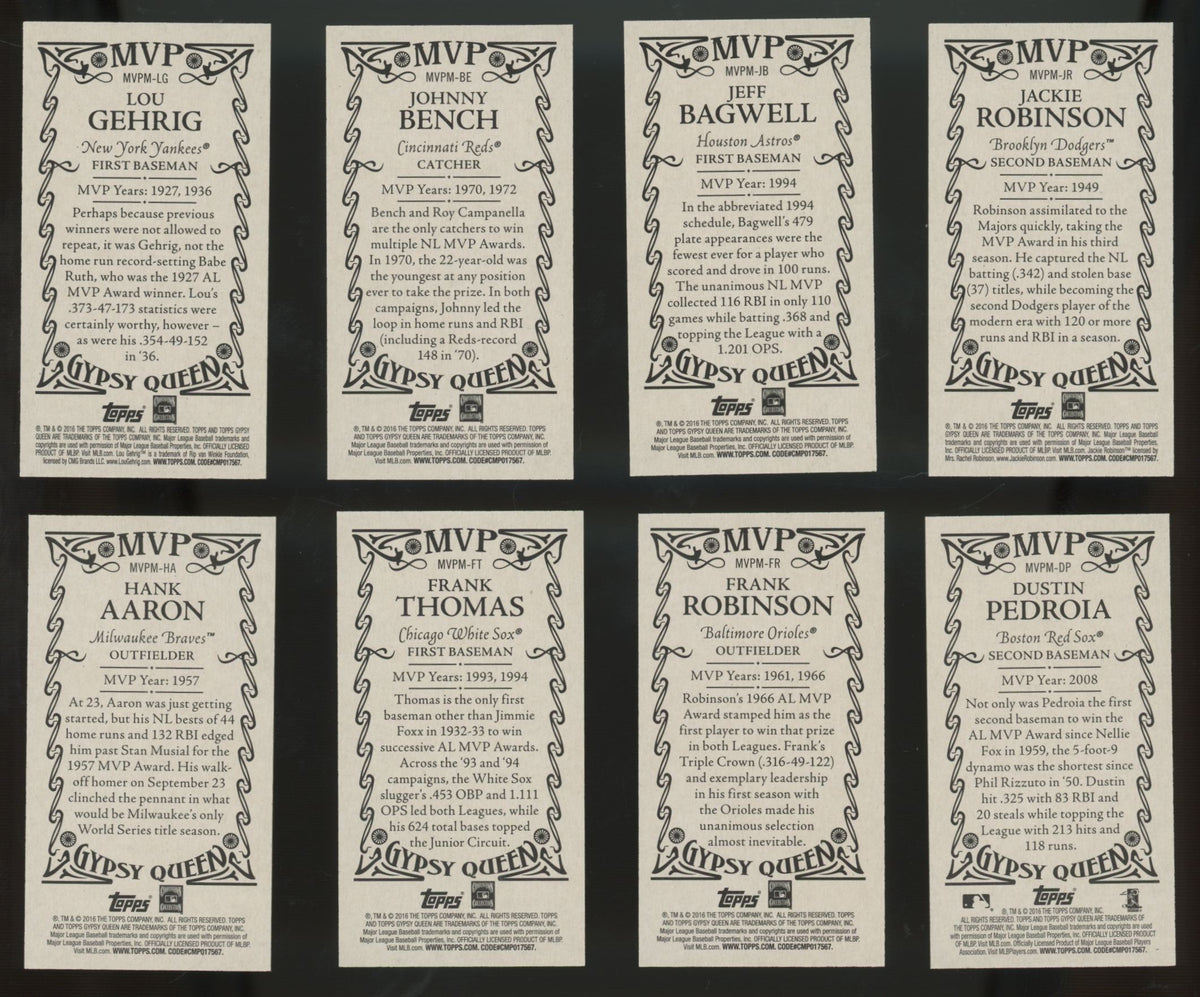 MVP
MVPM-LG
LOU
GEHRIG
New York Yankees®
FIRST BASEMAN
MVP Years: 1927, 1936
Perhaps because previous
winners were not allowed to
repeat, it was Gehrig, not the
home run record-setting Babe
Ruth, who was the 1927 AL
MVP Award winner. Lou's
.373-47-173 statistics were
certainly worthy, however –
as were his .354-49-152
in '36.
GYPSY QUEEN
Topps®
®, TM & © 2016 THE TOPPS COMPANY, INC. ALL RIGHTS RESERVED. TOPPS AND TOPPS GYPSY
QUEEN ARE TRADEMARKS OF THE TOPPS COMPANY, INC. Major League Baseball trademarks and
copyrights are used with permission of Major League Baseball Properties, Inc. OFFICIALLY LICENSED
PRODUCT OF MLBP. Visit MLB.com. Lou Gehrig™ is a trademark of Rip van Winkle Foundation,
licensed by CMG Brands LLC. www.LouGehrig.com. WWW.TOPPS.COM. CODE#CMP017567.
MVP
MVPM-BE
JOHNNY
BENCH
Cincinnati Reds®
CATCHER
MVP Years: 1970, 1972
Bench and Roy Campanella
are the only catchers to win
multiple NL MVP Awards.
In 1970, the 22-year-old was
the youngest at any position
ever to take the prize. In both
campaigns, Johnny led the
loop in home runs and RBI
(including a Reds-record
148 in '70).
GYPSY QUEEN
Topps®
®, TM & © 2016 THE TOPPS COMPANY, INC. ALL RIGHTS RESERVED. TOPPS
AND TOPPS GYPSY QUEEN ARE TRADEMARKS OF THE TOPPS COMPANY, INC.
Major League Baseball trademarks and copyrights are used with permission of
Major League Baseball Properties, Inc. OFFICIALLY LICENSED PRODUCT OF MLBP.
Visit MLB.com. WWW.TOPPS.COM. CODE#CMP017567.
MVP
MVPM-JB
JEFF
BAGWELL
Houston Astros®
FIRST BASEMAN
MVP Year: 1994
In the abbreviated 1994
schedule, Bagwell's 479
plate appearances were the
fewest ever for a player who
scored and drove in 100 runs.
The unanimous NL MVP
collected 116 RBI in only 110
games while batting .368 and
topping the League with a
1.201 OPS.
GYPSY QUEEN
Topps®
®, TM & © 2016 THE TOPPS COMPANY, INC. ALL RIGHTS RESERVED. TOPPS
AND TOPPS GYPSY QUEEN ARE TRADEMARKS OF THE TOPPS COMPANY, INC.
Major League Baseball trademarks and copyrights are used with permission of
Major League Baseball Properties, Inc. OFFICIALLY LICENSED PRODUCT OF MLBP.
Visit MLB.com. WWW.TOPPS.COM. CODE#CMP017567.
MVP
MVPM-JR
JACKIE
ROBINSON
Brooklyn Dodgers™
SECOND BASEMAN
MVP Year: 1949
Robinson assimilated to the
Majors quickly, taking the
MVP Award in his third
season. He captured the NL
batting (.342) and stolen base
(37) titles, while becoming the
second Dodgers player of the
modern era with 120 or more
runs and RBI in a season.
GYPSY QUEEN
Topps®
®, TM & © 2016 THE TOPPS COMPANY, INC. ALL RIGHTS RESERVED. TOPPS AND TOPPS
GYPSY QUEEN ARE TRADEMARKS OF THE TOPPS COMPANY, INC. Major League Baseball
trademarks and copyrights are used with permission of Major League Baseball Properties,
Inc. OFFICIALLY LICENSED PRODUCT OF MLBP. Visit MLB.com. Jackie Robinson™ licensed by
Mrs. Rachel Robinson, www.JackieRobinson.com. WWW.TOPPS.COM. CODE#CMP017567.
MVP
MVPM-HA
HANK
AARON
Milwaukee Braves™
OUTFIELDER
MVP Year: 1957
At 23, Aaron was just getting
started, but his NL bests of 44
home runs and 132 RBI edged
him past Stan Musial for the
1957 MVP Award. His walk-
off homer on September 23
clinched the pennant in what
would be Milwaukee's only
World Series title season.
GYPSY QUEEN
Topps®
®, TM & © 2016 THE TOPPS COMPANY, INC. ALL RIGHTS RESERVED. TOPPS
AND TOPPS GYPSY QUEEN ARE TRADEMARKS OF THE TOPPS COMPANY, INC.
Major League Baseball trademarks and copyrights are used with permission of
Major League Baseball Properties, Inc. OFFICIALLY LICENSED PRODUCT OF MLBP.
Visit MLB.com. WWW.TOPPS.COM. CODE#CMP017567.
MVP
MVPM-FT
FRANK
THOMAS
Chicago White Sox®
FIRST BASEMAN
MVP Years: 1993, 1994
Thomas is the only first
baseman other than Jimmie
Foxx in 1932-33 to win
successive AL MVP Awards.
Across the '93 and '94
campaigns, the White Sox
slugger's .453 OBP and 1.111
OPS led both Leagues, while
his 624 total bases topped
the Junior Circuit.
GYPSY QUEEN
Topps®
®, TM & © 2016 THE TOPPS COMPANY, INC. ALL RIGHTS RESERVED. TOPPS
AND TOPPS GYPSY QUEEN ARE TRADEMARKS OF THE TOPPS COMPANY, INC.
Major League Baseball trademarks and copyrights are used with permission of
Major League Baseball Properties, Inc. OFFICIALLY LICENSED PRODUCT OF MLBP.
Visit MLB.com. WWW.TOPPS.COM. CODE#CMP017567.
MVP
MVPM-FR
FRANK
ROBINSON
Baltimore Orioles®
OUTFIELDER
MVP Years: 1961, 1966
Robinson's 1966 AL MVP
Award stamped him as the
first player to win that prize
in both Leagues. Frank's
Triple Crown (.316-49-122)
and exemplary leadership
in his first season with
the Orioles made his
unanimous selection
almost inevitable.
GYPSY QUEEN
Topps®
®, TM & © 2016 THE TOPPS COMPANY, INC. ALL RIGHTS RESERVED. TOPPS
AND TOPPS GYPSY QUEEN ARE TRADEMARKS OF THE TOPPS COMPANY, INC.
Major League Baseball trademarks and copyrights are used with permission of
Major League Baseball Properties, Inc. OFFICIALLY LICENSED PRODUCT OF MLBP.
Visit MLB.com. WWW.TOPPS.COM. CODE#CMP017567.
MVP
MVPM-DP
DUSTIN
PEDROIA
Boston Red Sox®
SECOND BASEMAN
MVP Year: 2008
Not only was Pedroia the first
second baseman to win the
AL MVP Award since Nellie
Fox in 1959, the 5-foot-9
dynamo was the shortest since
Phil Rizzuto in '50. Dustin
hit .325 with 83 RBI and
20 steals while topping the
League with 213 hits and
118 runs.
GYPSY QUEEN
Topps®
®, TM & © 2016 THE TOPPS COMPANY, INC.
ALL RIGHTS RESERVED. TOPPS AND TOPPS GYPSY QUEEN ARE TRADEMARKS OF
THE TOPPS COMPANY, INC. Major League Baseball trademarks and copyrights are used
with permission of Major League Baseball Properties, Inc. OFFICIALLY LICENSED PRODUCT
OF MLBP. Visit MLB.com. Officially Licensed Product of Major League Baseball Players
Association. Visit MLBPlayers.com. WWW.TOPPS.COM. CODE#CMP017567.